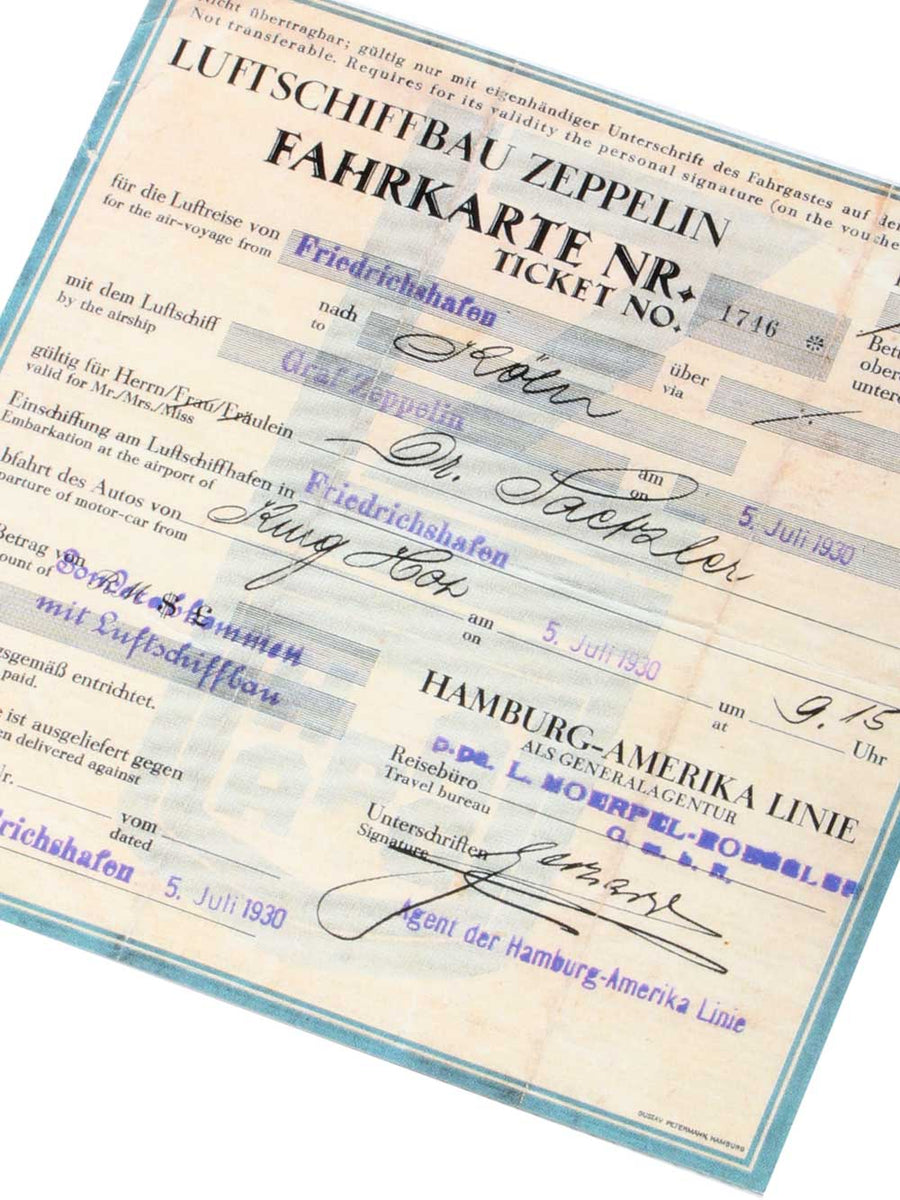 Nicht übertragbar; gültig nur mit eigenhändiger Unterschrift des Fahrgastes auf
Not transferable. Requires for its validity the personal signature (on the
LUFTSCHIFFBAU ZEPPELIN
FAHRKARTE NR.
TICKET NO. 1746 ※
für die Luftreise von Friedrichshafen nach Köln über ./.
for the air-voyage from to via
mit dem Luftschiff Graf Zeppelin am 5. Juli 1930
by the airship on
gültig für Herrn/Frau/Fräulein Dr.
valid for Mr./Mrs./Miss
Einschiffung am Luftschiffhafen in Friedrichshafen
Embarkation at the airport of
Abfahrt des Autos von am 5. Juli 1930 um 9.15 Uhr
departure of motor-car from on at
Betrag von RM $ £
amount of
mit Luftschiffbau
entrichtet.
paid.
HAMBURG-AMERIKA LINIE
ALS GENERALAGENTUR
ist ausgeliefert gegen
delivered against
Reisebüro
Travel bureau
G.m.b.H.
vom
dated
Unterschriften
Signature
5. Juli 1930
Agent der Hamburg-Amerika Linie
GUSTAV PETERMANN, HAMBURG